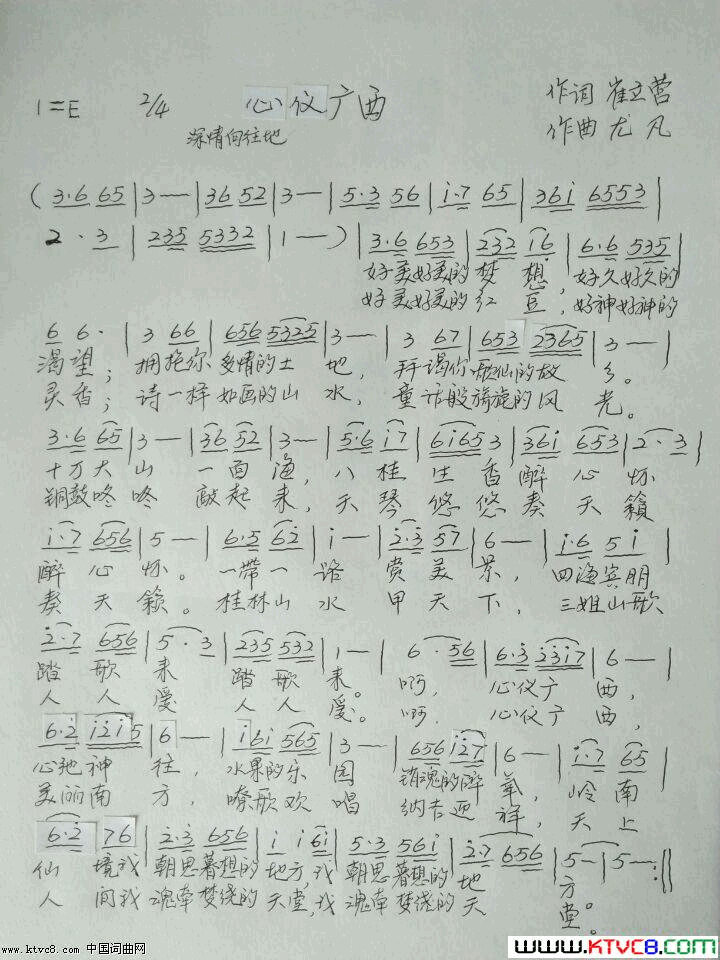 1=E 2/4 心仪广西 作词 崔立营
深情向往地 作曲 尤凡
(3·6 65|3—|36 52|3—|5·3 56|i·7 65|36i 6553|
2·3|235 5332|1—)|3·6 653|232 i6|6·6 535|
好美好美的梦想,好久好久的
好美好美的红豆,好神好神的
6 6·|3 66|656 5325|3—|3 67|653 2365|3—|
渴望;拥抱你多情的土地,拜谒你歌仙的故乡。
灵香;诗一样如画的山水,童话般旖旎的风光。
3·6 65|3—|36 52|3—|5·6 i7|6i65 3|36i 653|2·3|
十万大山一面海,八桂生香醉心怀
铜鼓咚咚敲起来,天琴悠悠奏天籁
i·7 656|5—|6·5 62|i—|2·3 57|6—|i·6 5i|
醉心怀。一带一路赏美景,四海宾朋
奏天籁。桂林山水甲天下,三姐山歌
2·7 656|5·3|235 532|1—|6·56|6·3 23i7|6—|
踏歌来踏歌来。啊,心仪广西,
人人爱人人爱。啊,心仪广西,
6·2 i2i5|6—|i6i 565|3—|656 i27|6—|i·7 65|
心驰神往,水果的乐园销魂的醉氧,岭南
美丽南方,嘹歌欢唱纳吉迎祥,天上
6·2 76|2·3 656|i i6i|5·3 56i|2·7 656|5—|5—:||
仙境我朝思暮想的地方,我朝思暮想的地方
人间我魂牵梦绕的天堂,我魂牵梦绕的天堂。
www.ktvc8.com 中国词曲网
WWW.KTVC8.COM